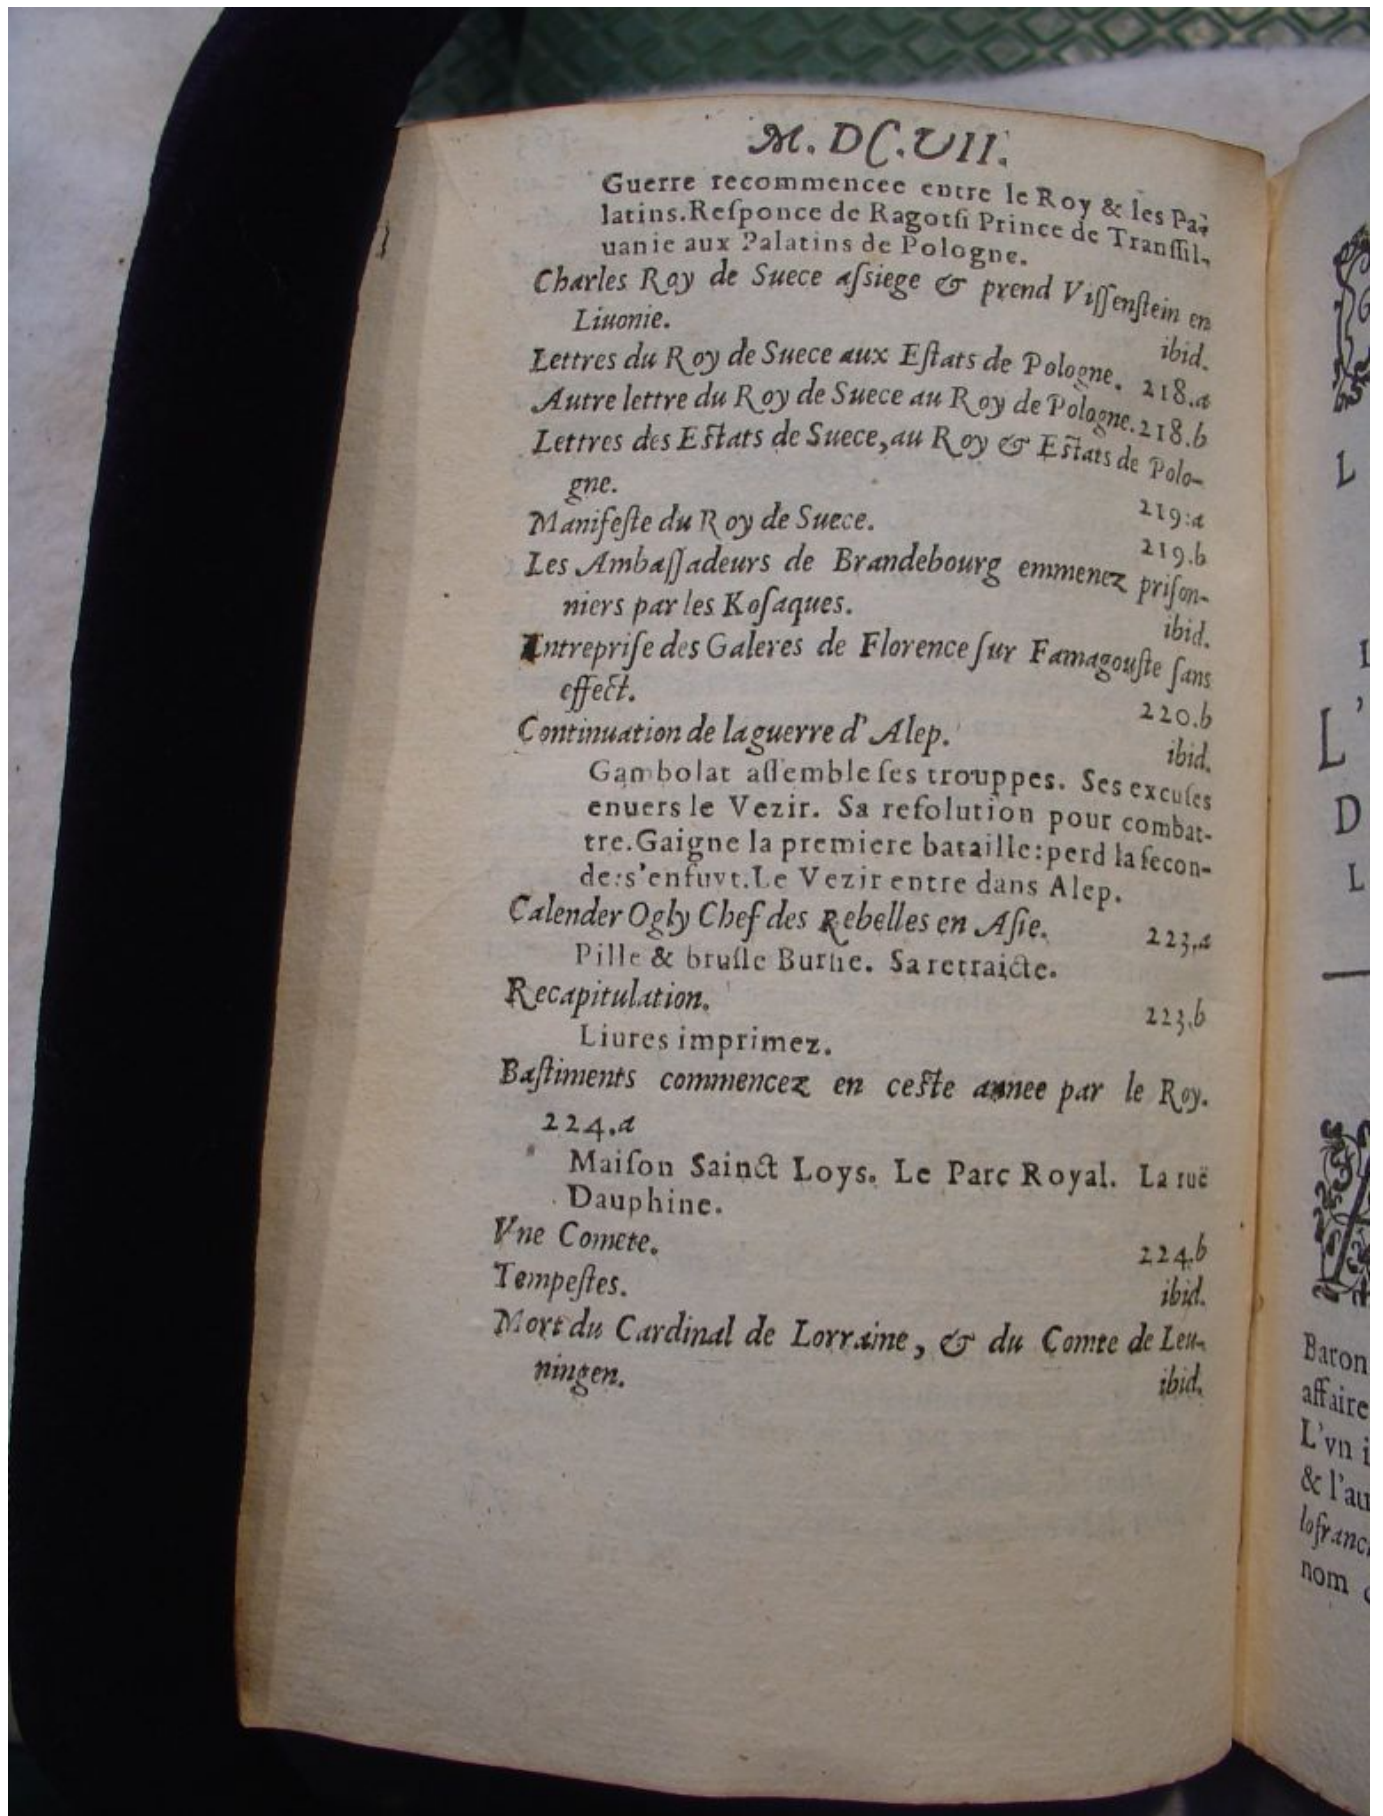 M. DC. VII.
Guerre recommencee entre le Roy & les Pa-
latins. Reſponce de Ragotſi Prince de Tranſſil-
uanie aux Palatins de Pologne.
Charles Roy de Suece aſsiege & prend Viſſenſtein en
Liuonie. ibid.
Lettres du Roy de Suece aux Eſtats de Pologne. 218.a
Autre lettre du Roy de Suece au Roy de Pologne. 218.b
Lettres des Eſtats de Suece, au Roy & Eſtats de Polo-
gne. 219:a
Manifeſte du Roy de Suece. 219.b
Les Ambaſſadeurs de Brandebourg emmenez priſon-
niers par les Koſaques. ibid.
Entrepriſe des Galeres de Florence ſur Famagouſte ſans
effect. 220.b
Continuation de la guerre d'Alep. ibid.
Gambolat aſſemble ſes trouppes. Ses excuſes
enuers le Vezir. Sa reſolution pour combat-
tre. Gaigne la premiere bataille: perd la ſecon-
de: s'enfuyt. Le Vezir entre dans Alep.
Calender Ogly Chef des Rebelles en Aſie. 223.a
Pille & bruſle Burſie. Sa retraicte.
Recapitulation. 223.b
Liures imprimez.
Baſtiments commencez en ceſte annee par le Roy.
224.a
Maiſon Sainct Loys. Le Parc Royal. La ruë
Dauphine.
Vne Comete. 224.b
Tempeſtes. ibid.
Mort du Cardinal de Lorraine, & du Comte de Leu-
ningen. ibid.
L
L'
D
L
Baron
affaire
L'vn i
& l'au
loſranc
nom